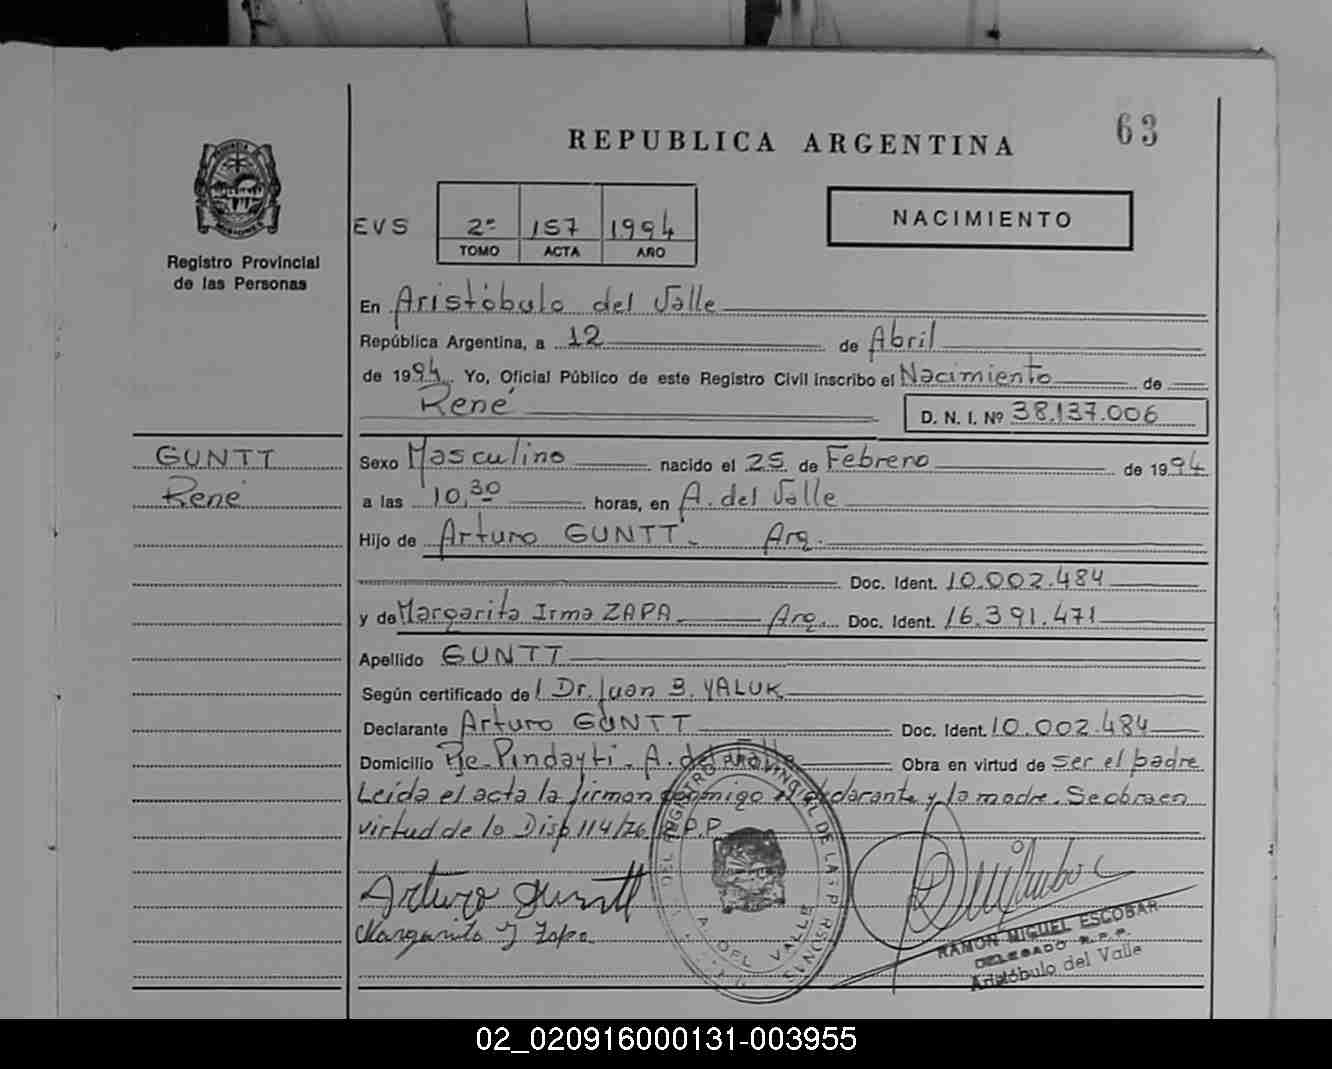 63
REPUBLICA ARGENTINA
PROVINCIA DE
MISIONES
Registro Provincial
de las Personas
EVS
2º 157 1994
TOMO ACTA AÑO
NACIMIENTO
En Aristóbulo del Valle
República Argentina, a 12 de Abril
de 1994. Yo, Oficial Público de este Registro Civil inscribo el Nacimiento de
René
D. N. I. Nº 38.137.006
GUNTT
René
Sexo Masculino nacido el 25 de Febrero de 1994
a las 10,30 horas, en A. del Valle
Hijo de Arturo GUNTT. Arg.
Doc. Ident. 10.002.484
y de Margarita Irma ZAPA Arg. Doc. Ident. 16.391.471
Apellido GUNTT
Según certificado de Dr. Juan B. YALUK
Declarante Arturo GUNTT Doc. Ident. 10.002.484
Domicilio Pje. Pindayti. A. del Valle Obra en virtud de ser el padre
Leída el acta la firman conmigo el declarante y la madre. Se obra en
virtud de la Disp 114/76 R.P.P.
Arturo Guntt
Margarita I Zapa
REGISTRO PROVINCIAL DE LAS PERSONAS
A. DEL VALLE
RAMON MIGUEL ESCOBAR
DELEGADO R.P.P.
Aristóbulo del Valle
02_020916000131-003955